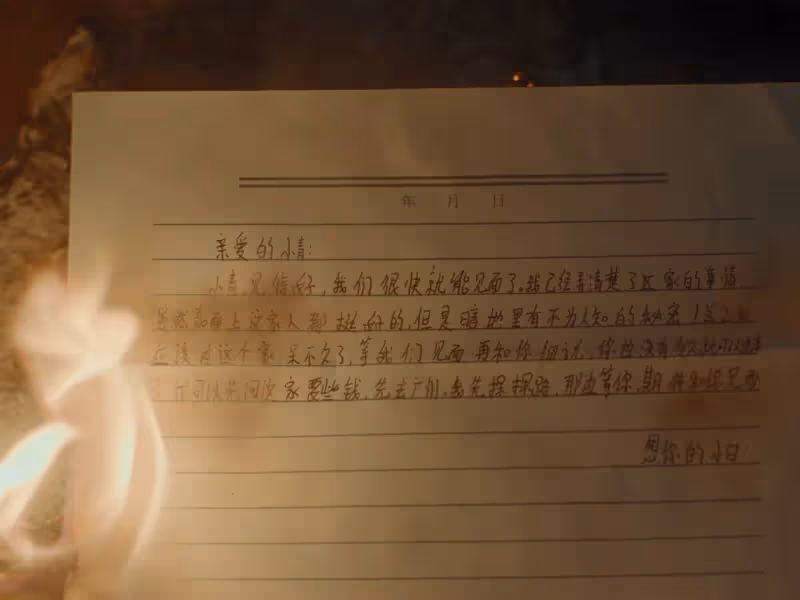 年 月 日
亲爱的小青:
小青,见信好,我们很快就能见面了。我已经弄清楚了这家的事情,
虽然表面上这家人都挺好的,但是暗地里有不为人知的秘密
应该在这个家呆不久了,等我们见面再和你细说,你
可以先问这家要些钱,先去广州,我先探探路,那边等你,期待和你见面
想你的小白